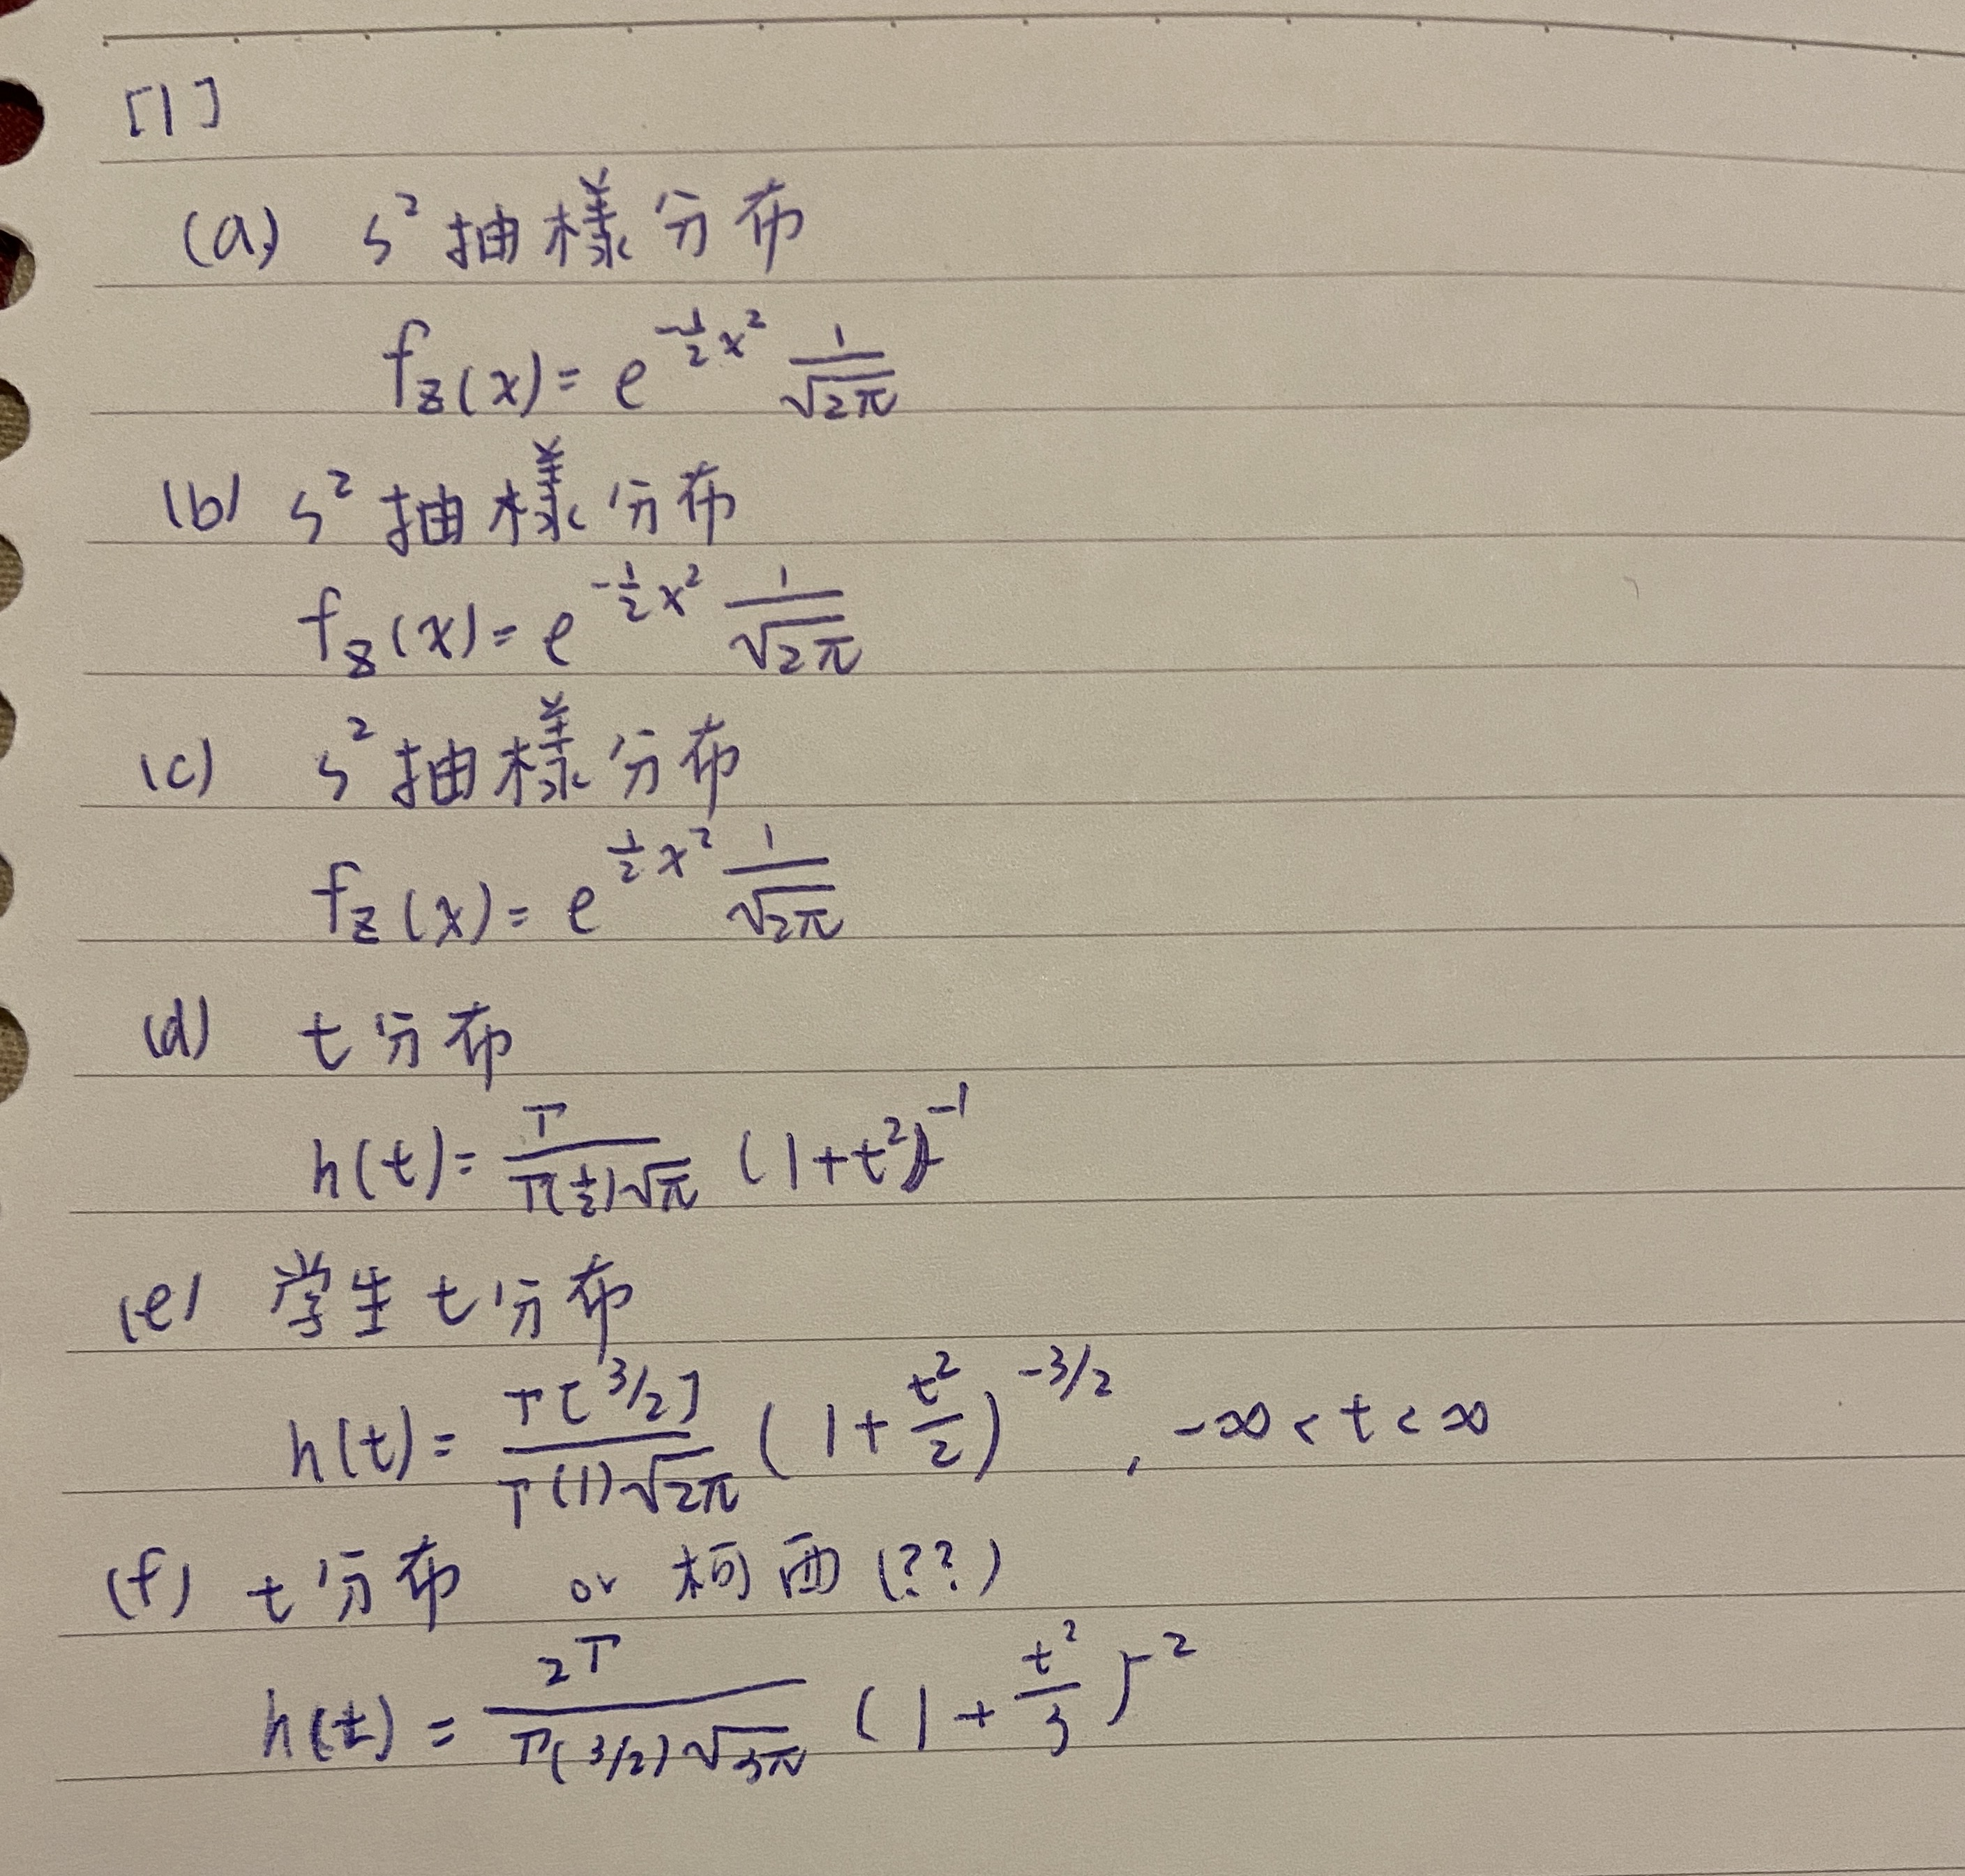 [1]
(a) s² 抽樣分布
f_z(x) = e^{-1/2 x²} 1/√2π
(b) s² 抽樣分布
f_z(x) = e^{-1/2 x²} 1/√2π
(c) s² 抽樣分布
f_z(x) = e^{1/2 x²} 1/√2π
(d) t 分布
h(t) = Γ/Γ(1/2)√π (1+t²)^{-1}
(e) 学生 t 分布
h(t) = Γ[3/2]/Γ(1)√2π (1+t²/2)^{-3/2}, -∞ < t < ∞
(f) t 分布 or 柯西 (??)
h(t) = 2Γ/Γ(3/2)√3π (1+t²/3)^{-2}